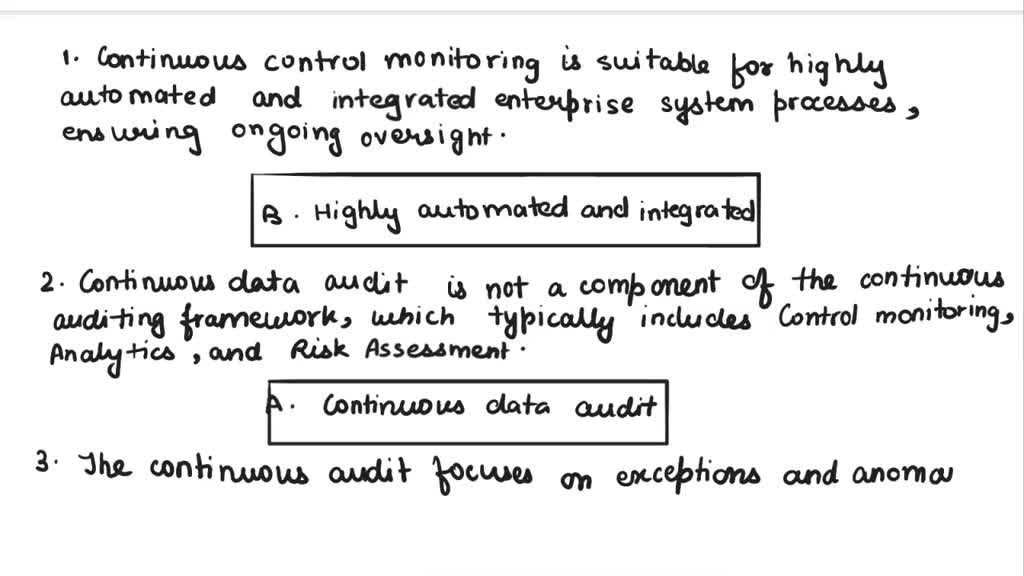 1. Continuous control monitoring is suitable for highly
automated and integrated enterprise system processes,
ensuring ongoing oversight.
B. Highly automated and integrated
2. Continuous data audit is not a component of the continuous
auditing framework, which typically includes Control monitoring,
Analytics, and Risk Assessment.
A. Continuous data audit
3. The continuous audit focuses on exceptions and anoma